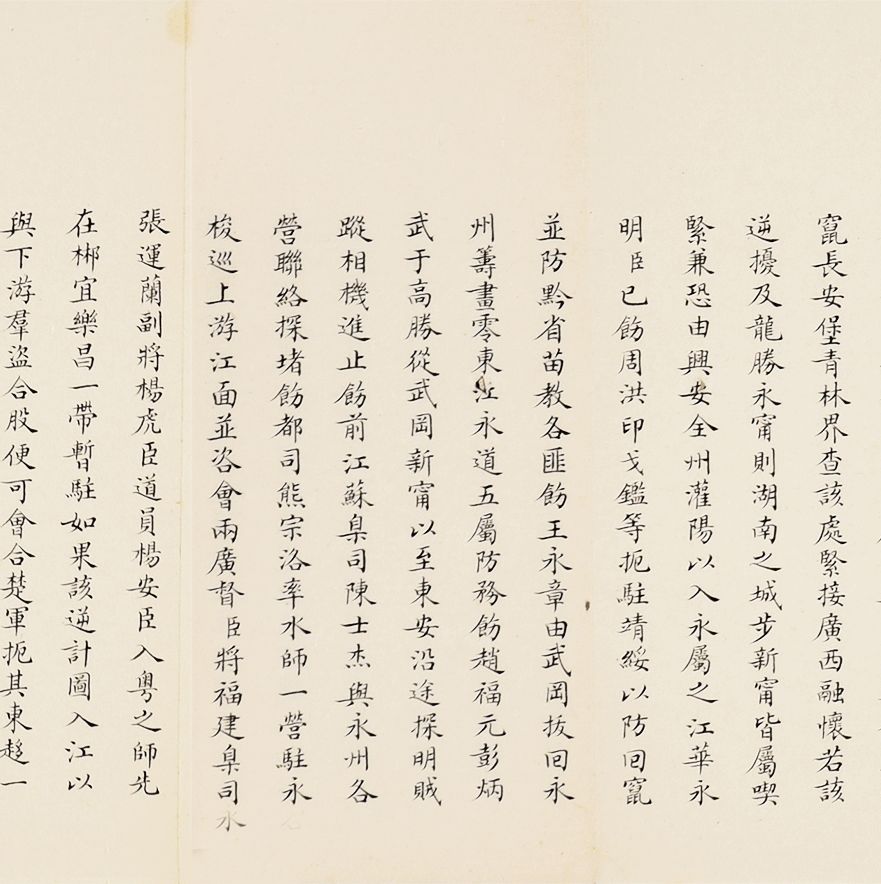 竄長安堡青林界查該處緊接廣西融懷若該
逆擾及龍勝永甯則湖南之城步新甯皆屬喫
緊兼恐由興安全州灌陽以入永屬之江華永
明臣已飭周洪印戈鑑等扼駐靖綏以防回竄
並防黔省苗教各匪飭王永章由武岡拔回永
州籌畫零東江永道五屬防務飭趙福元彭炳
武于高勝從武岡新甯以至東安沿途探明賊
蹤相機進止飭前江蘇臬司陳士杰與永州各
營聯絡探堵飭都司熊宗洛率水師一營駐永
梭巡上游江面並咨會兩廣督臣將福建臬司
張運蘭副將楊虎臣道員楊安臣入粵之師先
在郴宜樂昌一帶暫駐如果該逆計圖入江以
與下游羣盜合股便可會合楚軍扼其東趨一